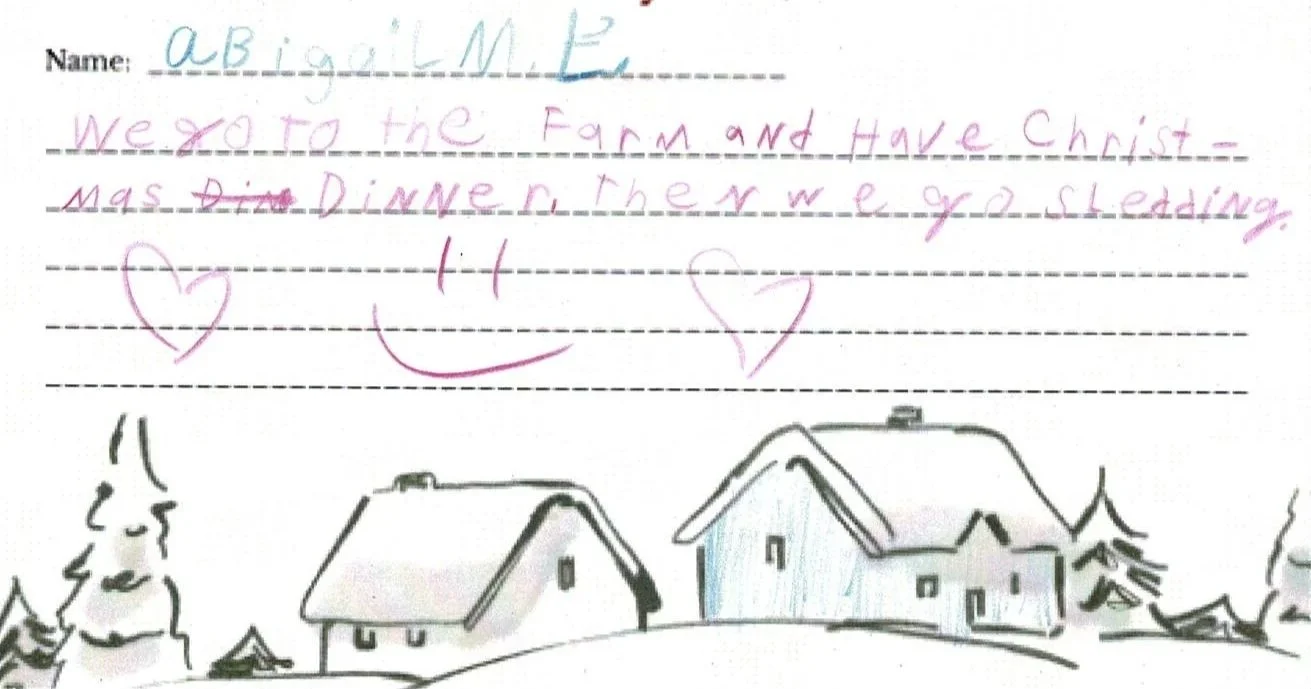 Name: aBigaiL M. E
We go To the Farm aNd Have Christ-
mas Din DiNNer. Then we go sLeddiNg.